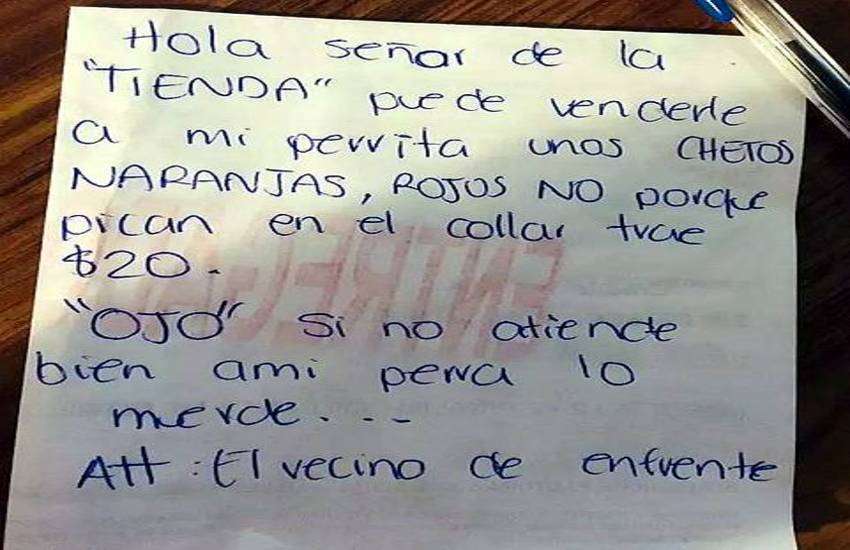 Hola señor de la
"TIENDA" puede venderle
a mi perrita unos CHETOS
NARANJAS, ROJOS NO porque
pican en el collar trae
$20.
"OJO" Si no atiende
bien ami perra lo
merde...
Att: El vecino de enfrente
ENTREGA